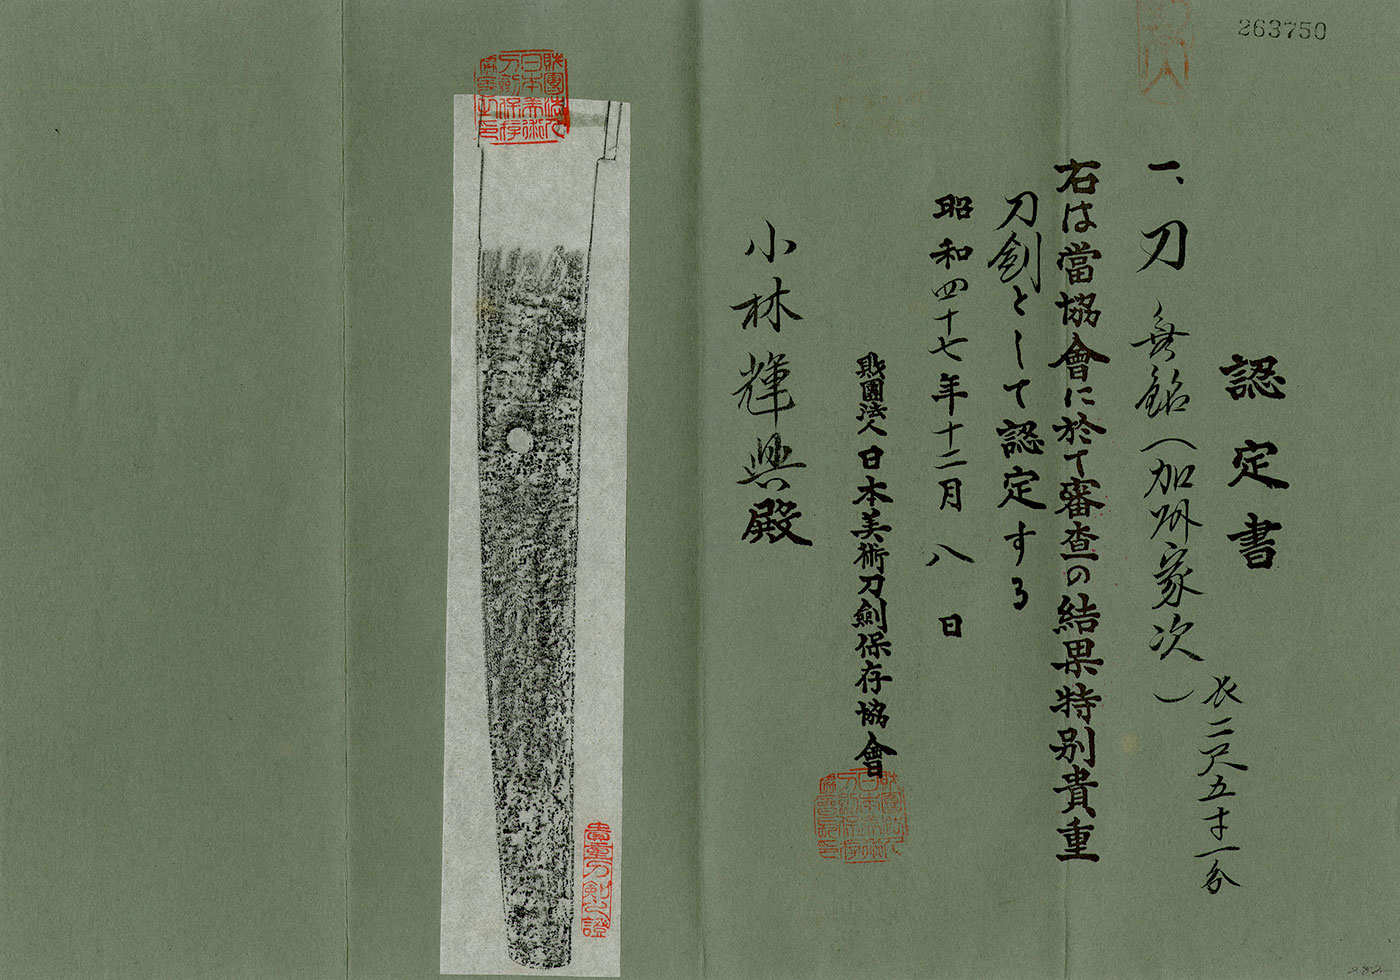 263750
認定書
一、刀 無銘(加州家次)
長二尺五寸一分
右は當協會に於て審査の結果特別貴重
刀劍として認定する
昭和四十七年十二月八日
財團法人日本美術刀劍保存協會
小林輝興殿
財團法人日本美術刀劍保存協會
貴重刀剣之證